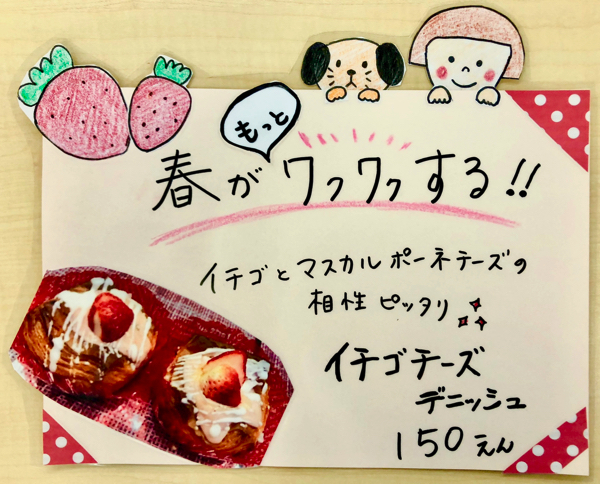 もっと
春がワクワクする!!
イチゴとマスカルポーネチーズの
相性ピッタリ
イチゴチーズ
デニッシュ
150えん